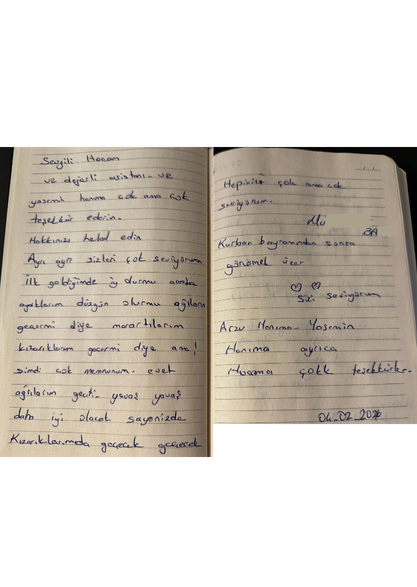 Sevgili Hocam
ve değerli asistanı ve
yasemin hanıma çok ama çok
teşekkür ederim.
Hakkınızı helal edin
Ayrı ayrı sizleri çok seviyorum
İlk geldiğimde iy durmu acaba
ayaklarım düzgün olurmu ağrılarım
geçermi diye morartılarım
kızarıklarım geçermi diye ama!
şimdi çok memnunum. evet
ağrılarım geçti. yavaş yavaş
daha iyi olacak sayenizde
Kızarıklarımda geçecek geçecek
Hepinizi çok ama çok
seviyorum.
Kurban bayramından sonra
görüşmek üzere
Sizi seviyorum
Arzu Hanıma - Yasemin
Hanıma ayrıca
Hocama çokk teşekkürler.
04.02.2026